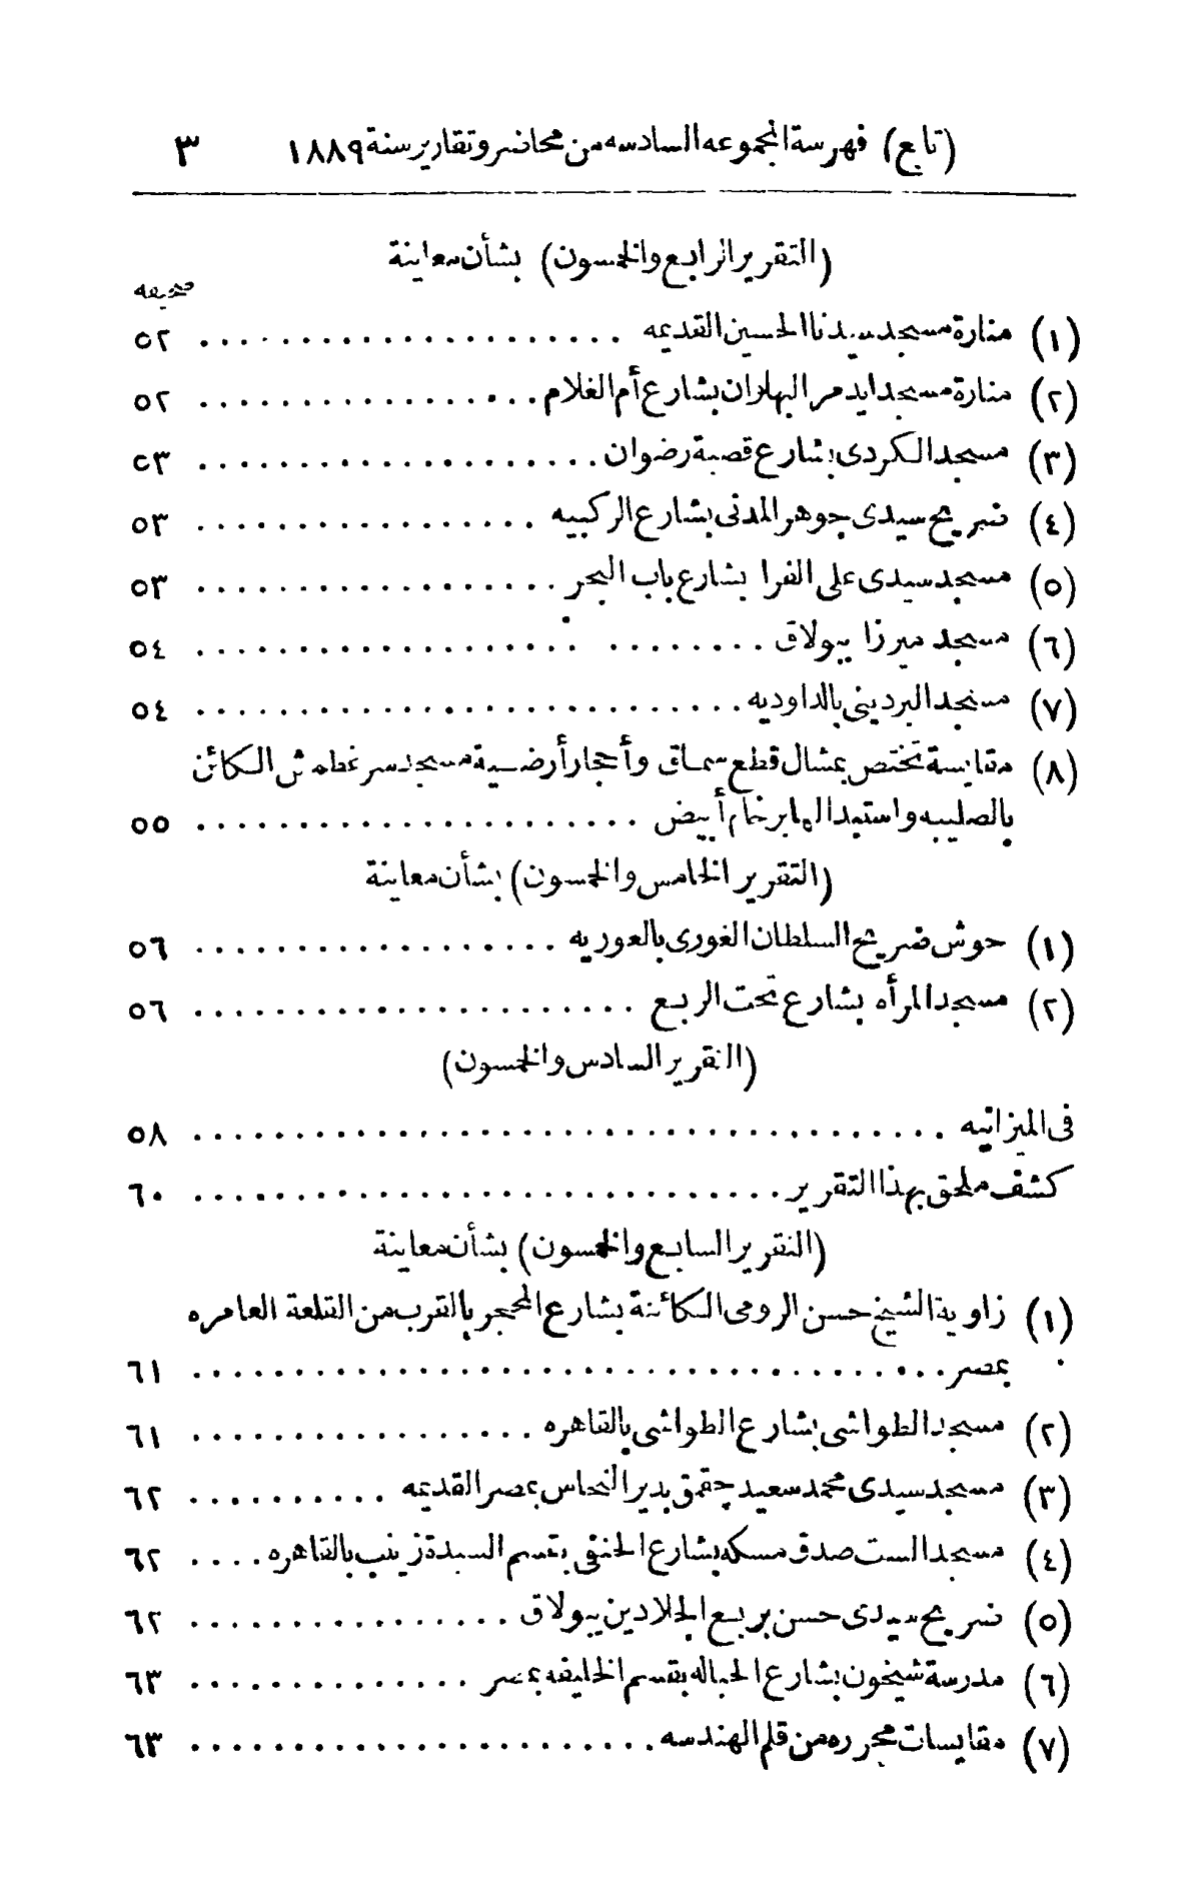 (تابع) فهرسة المجموعه السادسه من محاضر وتقارير سنة ١٨٨٩ ٣
(التقرير الرابع والخمسون) بشأن معاينة
صحيفه
(١) منارة مسجد سيدنا الحسين القديمه ٥٢
(٢) منارة مسجد ايدمر البهلوان بشارع أم الغلام ٥٢
(٣) مسجد الكردى بشارع قصبة رضوان ٥٣
(٤) ضريح سيدى جوهر المدنى بشارع الركبيه ٥٣
(٥) مسجد سيدى على الفرا بشارع باب البحر ٥٣
(٦) مسجد ميرزا ببولاق ٥٤
(٧) مسجد البردينى بالداوديه ٥٤
(٨) مقايسة تختص بمشال قطع سماق وأحجار أرضية مسجد سرغطمش الكائن
بالصليبه واستبدالها برخام أبيض ٥٥
(التقرير الخامس والخمسون) بشأن معاينة
(١) حوش ضريح السلطان الغورى بالغوريه ٥٦
(٢) مسجد المرأه بشارع تحت الربع ٥٦
(التقرير السادس والخمسون)
فى الميزانيه ٥٨
كشف ملحق بهذا التقرير ٦٠
(التقرير السابع والخمسون) بشأن معاينة
(١) زاوية الشيخ حسن الرومى الكائنة بشارع المحجر بالقرب من القلعة العامره
بمصر ٦١
(٢) مسجد الطواشى بشارع الطواشى بالقاهره ٦١
(٣) مسجد سيدى محمد سعيد جقمق بدير النحاس بمصر القديمه ٦٢
(٤) مسجد الست صدق مسكه بشارع الحنفى بقسم السيدة زينب بالقاهره ٦٢
(٥) ضريح سيدى حسن بربع الجلادين ببولاق ٦٢
(٦) مدرسة شيخون بشارع الحباله بقسم الخليفه بمصر ٦٣
(٧) مقايسات محرره من قلم الهندسه ٦٣